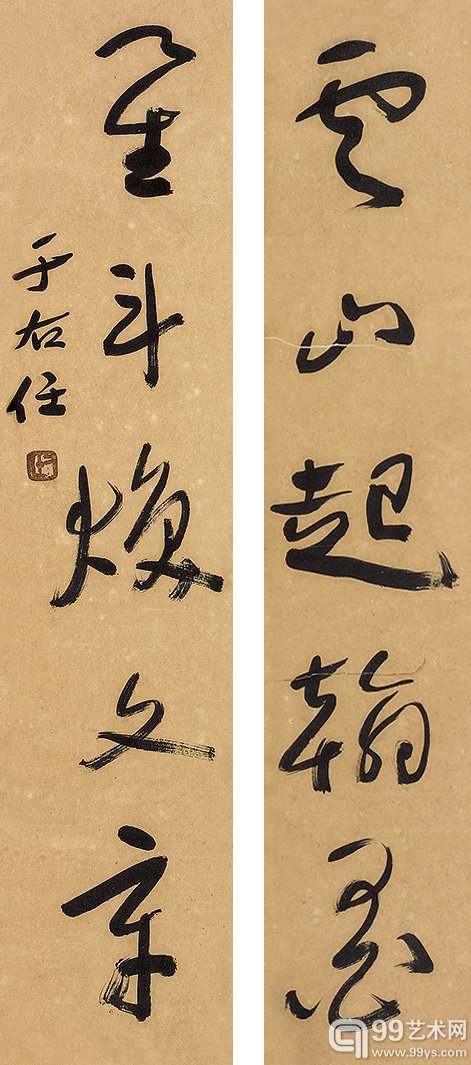 雲山起翰墨
星斗煥文章
于右任
99艺术网
www.99ys.com